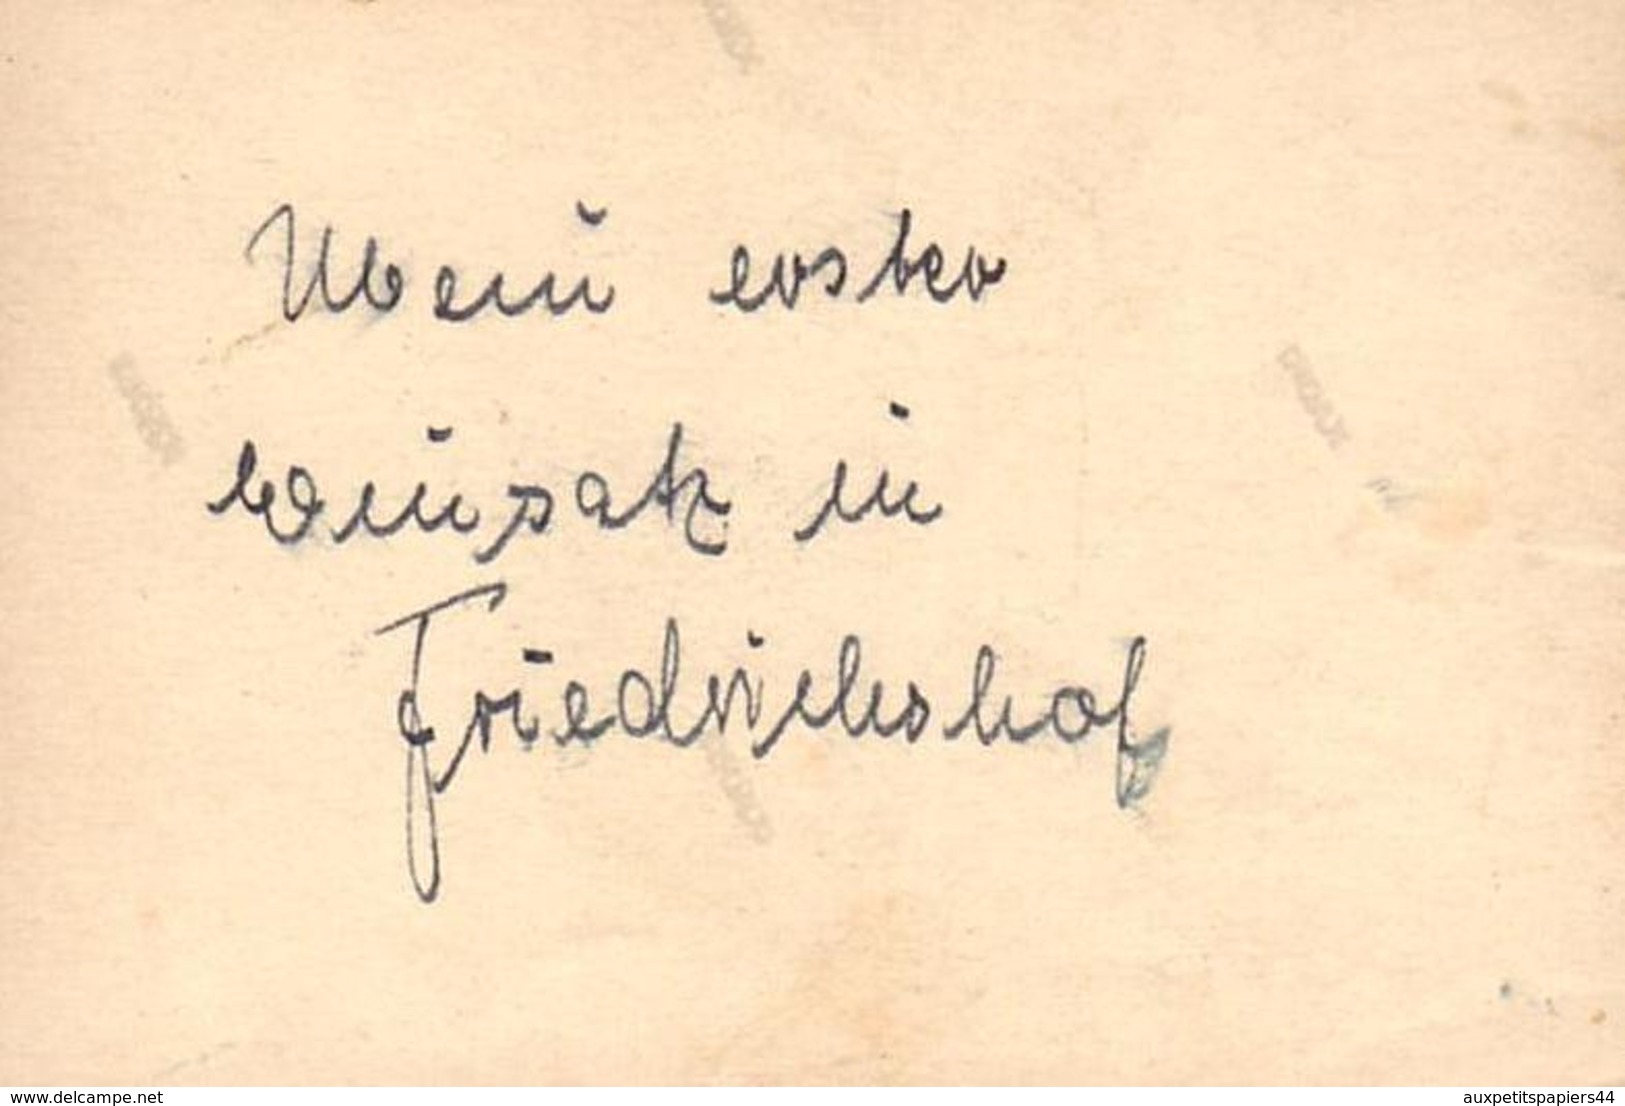 Mein erster
Einsatz in
Friedrichshof
www.delcampe.net
auxpetitspapiers44